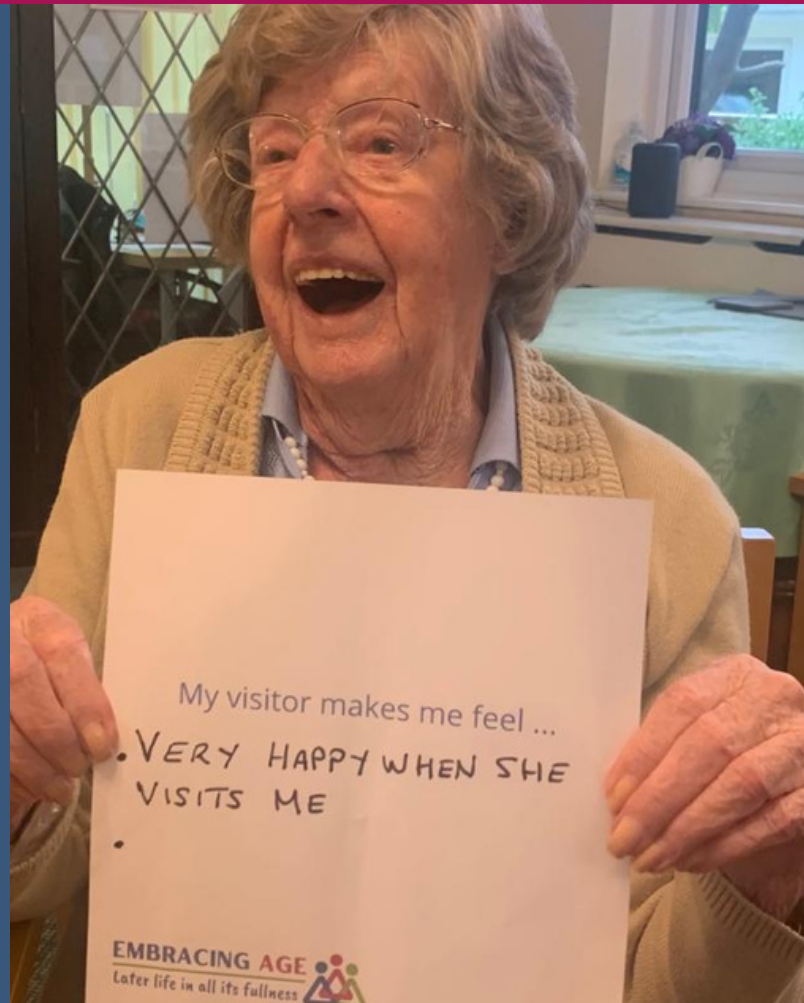 My visitor makes me feel ...
• VERY HAPPY WHEN SHE
VISITS ME
•
EMBRACING AGE
Later life in all its fullness